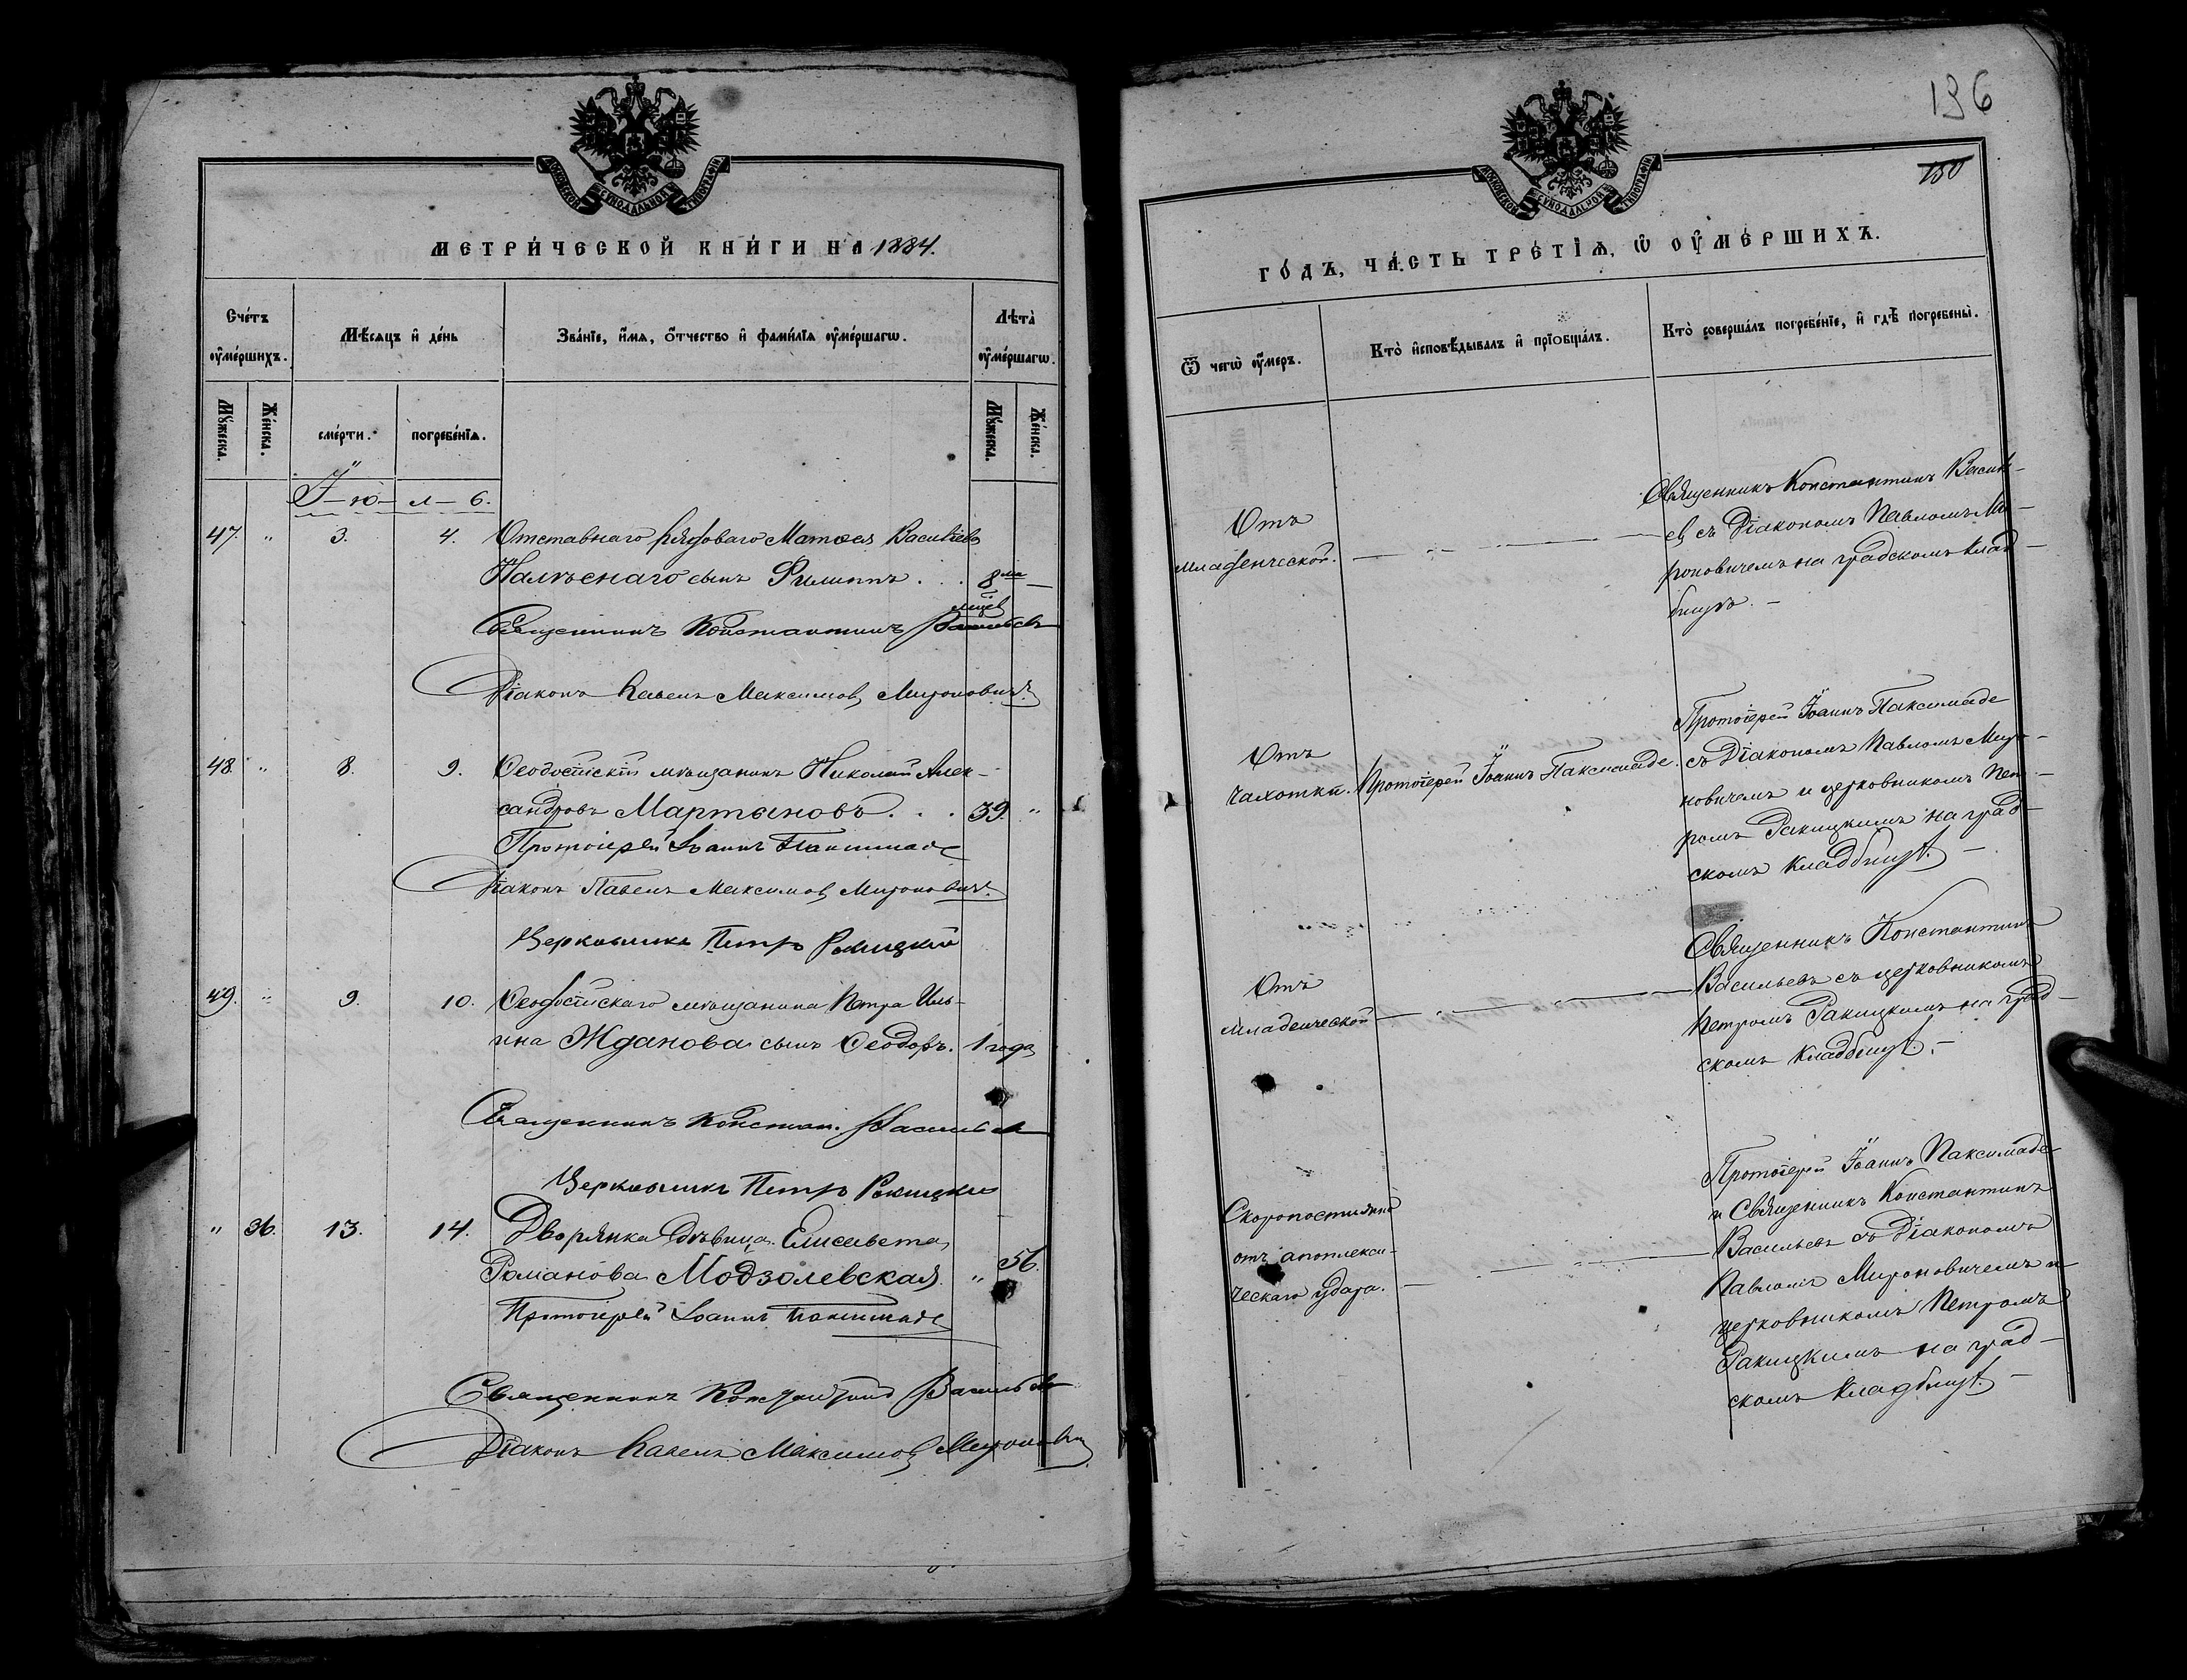 МОСКОВСКОЙ СѴНОДАЛЬНОЙ ТИПОГРАФІИ
МЕТРИ́ЧЕСКОЙ КНИ́ГИ НА 1884.
Сче́тъ ᲂу҆ме́ршихъ.
Мѣ́сяцъ и҆ де́нь
Зва́нїе, и҆́мѧ, ѻ҆́тчество и҆ фами́лїѧ ᲂу҆ме́ршагѡ.
Лѣта̀ ᲂу҆ме́ршагѡ.
Мꙋ́жеска.
Же́нска.
сме́рти.
погребе́нїѧ.
Мꙋ́жеска.
Же́нска.
І-ю-л-ь.
47. " 3. 4. Отставнаго рядоваго Матѳея Васильева
сынъ Филиппъ . . . 8 мѣ-
сяцев
Священникъ Константинъ Васильевъ
Діаконъ Павелъ Максимов Мироновичъ.
48. " 8. 9. Ѳеодосійскій мѣщанинъ Николай Алек-
сандровъ Мартыновъ . . . 39. "
Протоіерей Іоаннъ Паксимаде
Діаконъ Павелъ Максимов Мироновичъ.
Церковникъ Петръ Ракицкій
49. " 9. 10. Ѳеодосійскаго мѣщанина Петра Иль-
ина Жданова сынъ Ѳеодоръ. 1 года
Священникъ Констан. Васильев
Церковникъ Петръ Ракицкій
" 36. 13. 14. Дворянка дѣвица Елисавета
Романова Модзолевская. " 56.
Протоіерей Іоаннъ Паксимаде
Священникъ Константинъ Васильевъ
Діаконъ Павелъ Максимов Миронович
136
150
МОСКОВСКОЙ СѴНОДАЛЬНОЙ ТИПОГРАФІИ
ГО́ДЪ, ЧА́СТЬ ТРЕ́ТЇѦ, Ѡ҆ ОУ҆МЕ́РШИХЪ.
Ѿ чегѡ̀ ᲂу҆́меръ.
Кто̀ и҆сповѣ́дывалъ и҆ прїобща́лъ.
Кто̀ соверша́лъ погребе́нїе, и҆ гдѣ̀ погребены̀.
Отъ
младенческой.
Священникъ Константинъ Василь-
ев съ Діакономъ Павломъ Ми-
роновичемъ на градскомъ клад-
бищѣ. -
Отъ
чахотки.
Протоіерей Іоаннъ Паксимаде.
Протоіерей Іоаннъ Паксимаде
съ Діакономъ Павломъ Миро-
новичемъ и церковникомъ Пет-
ромъ Ракицкимъ на град-
скомъ кладбищѣ. -
Отъ
младенческой
Священникъ Константинъ
Васильевъ съ церковникомъ
Петромъ Ракицкимъ на град-
скомъ кладбищѣ. -
Скоропостижно
отъ апоплекси-
ческаго удара.
Протоіерей Іоаннъ Паксимаде
и Священникъ Константинъ
Васильевъ съ Діакономъ
Павломъ Мироновичемъ и
церковникомъ Петромъ
Ракицкимъ на град-
скомъ кладбищѣ. -